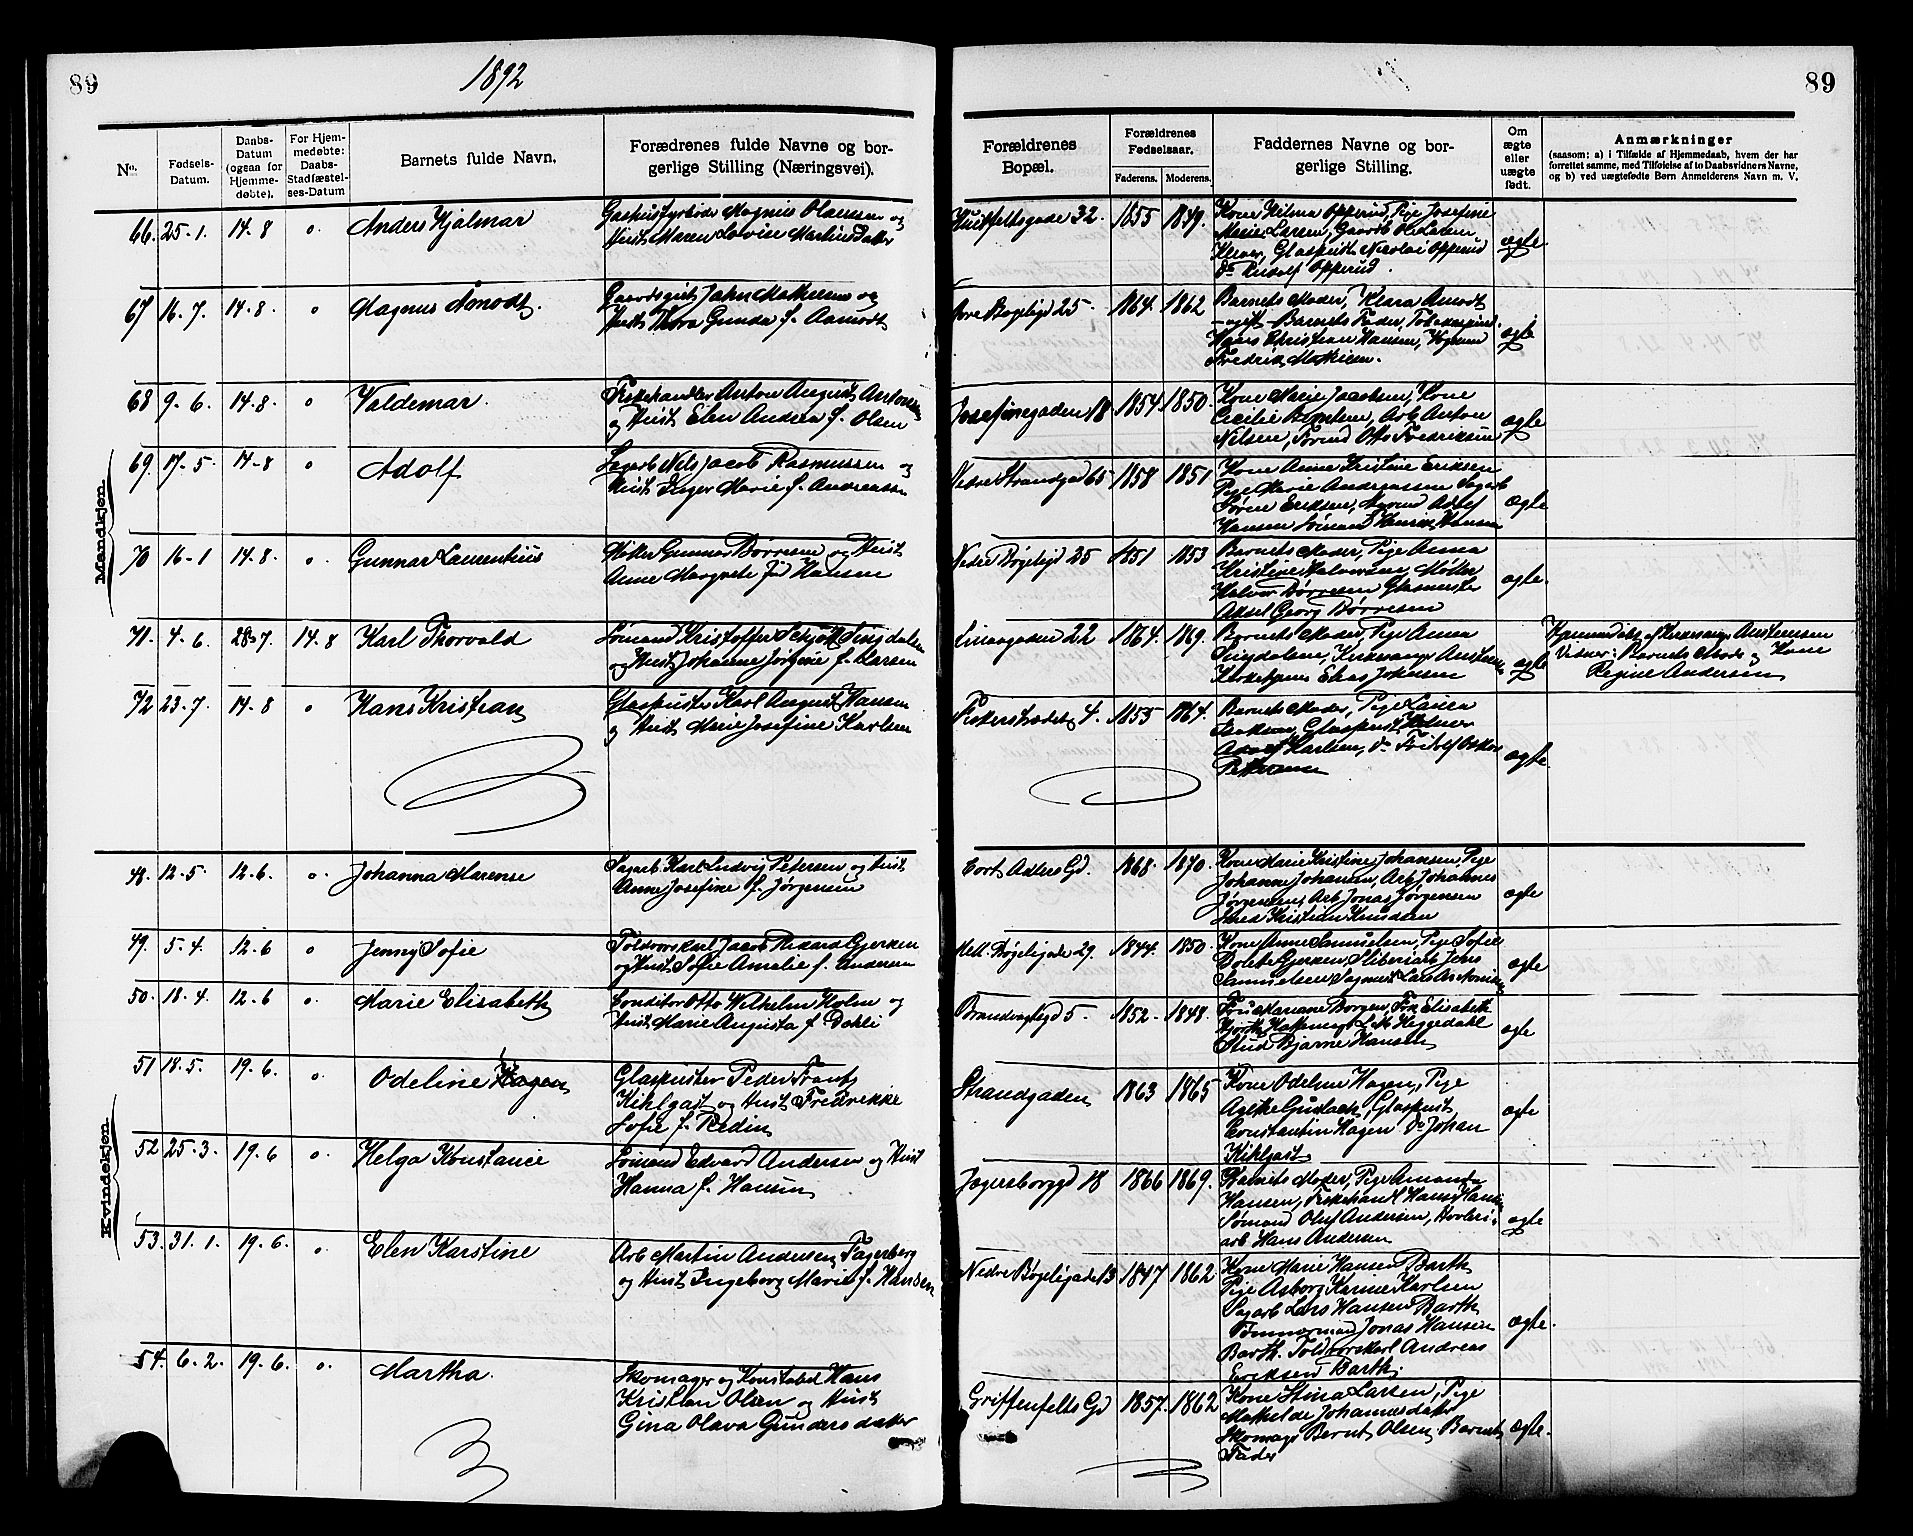 89
1892
89
No.
Fødsels-Datum.
Daabs-Datum (ogsaa for Hjemme-døbte).
For Hjem-medøbte: Daabs-Stadfæstel-ses-Datum
Barnets fulde Navn.
Forædrenes fulde Navne og bor-gerlige Stilling (Næringsvei).
Forældrenes Bopæl.
Forældrenes Fødselsaar.
Faderens.
Moderens.
Faddernes Navne og bor-gerlige Stilling.
Om ægte eller uægte født.
Anmærkninger
(saasom: a) i Tilfælde af Hjemmedaab, hvem der har
forrettet samme, med Tilføielse af to Daabsvidners Navne,
og b) ved uægtefødte Børn Anmelderens Navn m. V.
Mandkjøn.
66. 25-1. 14-8 o. Anders Hjalmar
Magnus Olaussen og
Hust Maren Lovise Martinsdatter
Huitfeltsgade 32. 1855 1849.
Kone Hilma Opperud, Pige Josefine
Marie Larsen,
Glaspust. Nicolai Opperud
Do Rudolf Opperud.
ægte
67 16-7. 14-8. o Magnus Amodt.
John Mathisen og
Hust Thora Gunda f. Aamodt
Øvre Bøgeligd 25. 1864. 1862
Barnets Moder, Klara Amodt
ugift Barnets Fader,
Hans Christian Hansen,
Fredrik Mathisen.
ægte
68 9-6. 14-8. o Valdemar.
Fiskehandler Anton August Antonsen
og Hust Elen Andrea f. Olsen
Josefinegaden 18 1854. 1850.
Kone Marie Jacobsen, Kone
Cecilie Berntsen, Arb Anton
Nilsen, Otto Fredriksen
ægte
69. 17-5. 14-8 o Adolf
Sagarb Nils Jacob Rasmussen og
Hust Inger Marie f. Andreassen
Nedre Strandgad 65 1858 1851
Kone Anne Kristine Eriksen
Pige Marie Andreassen Sagarb
Sørine Eriksen, Adolf
Hansen Sømand Henrik Hansen
ægte
70 16-1 14-8. o Gunnar Laurentius
Møller Gunnar Børresen og Hust
Anne Margrete Hansen
Nedre Bøgeligd 25 1851 1853
Barnets Moder, Pige Anna
Kristine Halvorsen, Møller
Halvor Børresen Glasmester
Aksel Georg Børresen
ægte.
71. 4-6. 28-7. 14-8 Karl Thorvald
Sømand Kristoffer Schjøtt Singdalsen
og Hust Johanne Jørgine f. Larsen
Linaagaden 22 1864. 1869.
Barnets Moder, Pige Anna
Singdalsen,
Elias Johnsen
ægte
Vidner: Barnets Mode og Kone
Regine Andersen
72 23-7. 14-8 o Hans Kristian
Glaspuster Karl August Hansen
og Hust Marie Josefine Karlsen
Fiskerstrædet 4. 1855 1864.
Barnets Moder, Pige Laura
Glaspust
Adolf Karlsen, do Fridolf Oskar
Pettersen
ægte.
Kvindekjøn.
48. 12-5. 12-6. o. Johanna Marense
Sagarb Karl Ludvig Petersen og Hust
Anne Josefine f. Jørgensen
Cort Adlers Gd. 1868. 1870.
Kone Marie Kristine Johansen, Pige
Johanne Johansen, Arb Johannes
Jørgensen, Arb Jonas Jørgensen
Kristian Knudsen
ægte
49. 5-4. 12-6 o Jenny Sofie
Toldvorskarl Jacob Rikard Gjerken
og Hust Sofie Amalie f. Andersen
Mell. Bøgeligade 29. 1844. 1850.
Kone Anne Samuelsen, Pige Sofie
Dorte Gjerken, Sliberiarb Jens
Samuelsen Sagmest Lars Antonisen
ægte
50. 18-4. 12-6 o. Marie Elisabeth
Conditor Otto Wilhelm Holm og
Hust Marie Augusta f. Dahli
Brandvagtgd 5. 1852. 1848.
Fru Mariane Borgen, Frk Elisabeth
Heggedahl
Stud Bjarne Hansen
ægte
51 18-5. 19-6. o. Odeline Hagen
Glaspuster Peder Frants
Kihlgast og Hust Fredrikke
Sofie f. Redin
Strandgaden 1863 1865
Kone Odeline Hagen, Pige
Agethe Gurlach, Glaspust
Constantin Hagen Do Johan
Kihlgast
ægte
52 25-3. 19-6 o. Helga Konstance
Sømand Edvard Andersen og Hust
Hanna f. Hansen
Jægersborggd 18 1866 1869.
Barnets Moder, Pige Amanda
Hansen, Fiskehandl Hans Hansen
Sømand Oluf Andersen, Høvleri-
arb Hans Andersen
ægte
53. 31-1. 19-6. o. Elen Karstine
Arb Martin Andersen Fagerberg
og Hust Ingeborg Marie f. Hansen
Nedre Bøgeligade 13 1847 1862
Kone Marie Hansen Barth
Pige Asborg Karine Karlsen
Sagarb Lars Hansen Barth
Tømmermand Jonas Hansen
Barth. Toldvorskarl Andreas
Eriksen Barth.
ægte.
54. 6-2. 19-6. o. Martha.
Skomager og Konstabel Hans
Kristian Olsen og Hust
Gina Olava Gundersdatter
Griffenfelts Gd 1857. 1862
Kone Stina Larsen, Pige
Mathilde Johannesdatter
Skomager Bernt Olsen, Barnets
Fader
ægte.